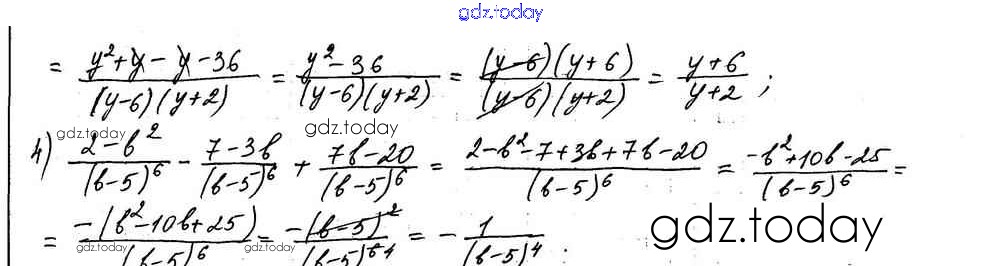 gdz.today
= (y²+y-y-36)/((y-6)(y+2)) = (y²-36)/((y-6)(y+2)) = ((y-6)(y+6))/((y-6)(y+2)) = (y+6)/(y+2) ;
gdz.today gdz.today
4) (2-b²)/(b-5)⁶ - (7-3b)/(b-5)⁶ + (7b-20)/(b-5)⁶ = (2-b²-7+3b+7b-20)/(b-5)⁶ = (-b²+10b-25)/(b-5)⁶ =
= (-(b²-10b+25))/(b-5)⁶ = (-(b-5)²)/(b-5)⁶ ⁴ = - 1/(b-5)⁴ .
gdz.today gdz.today gdz.today